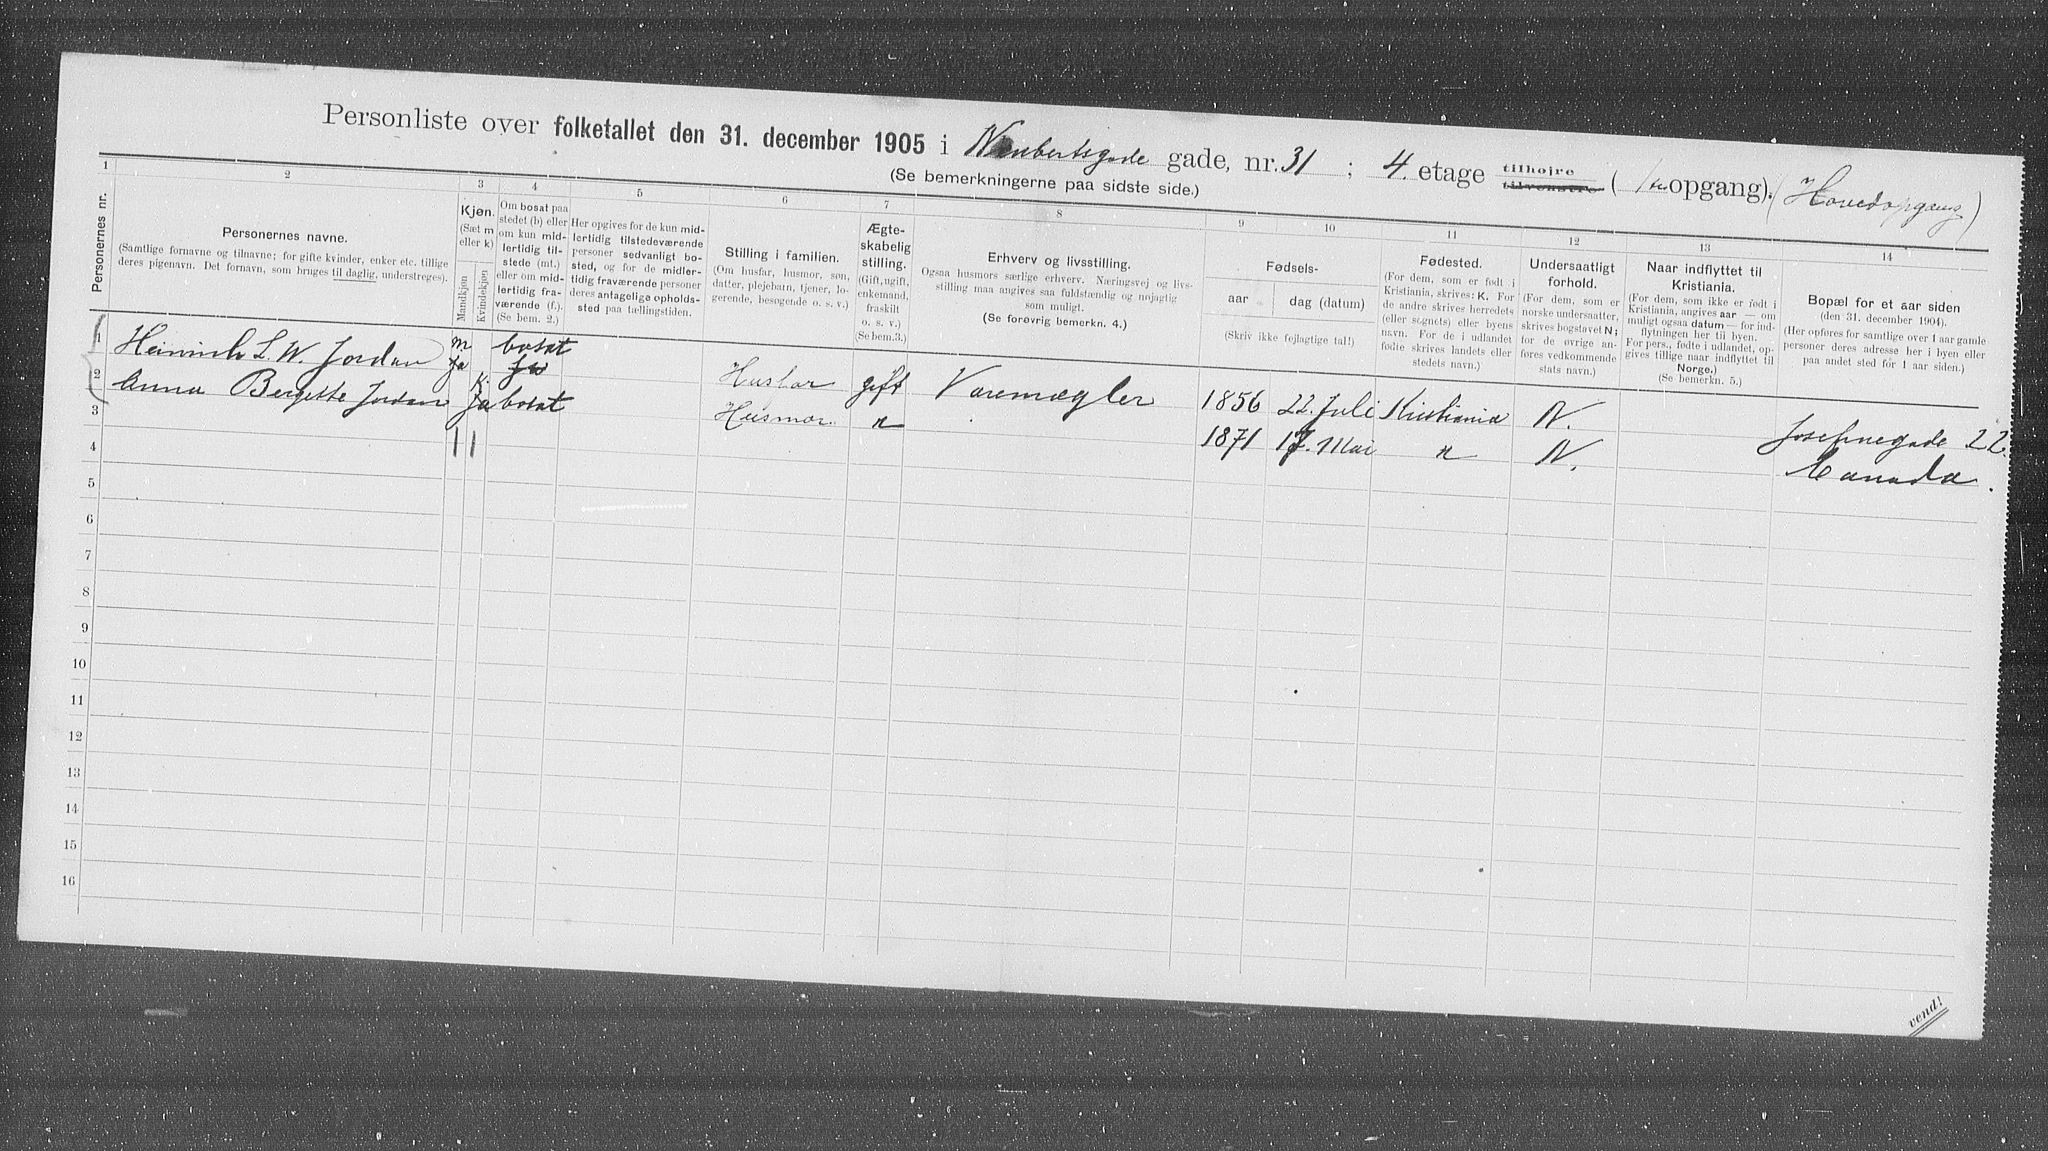 Personliste over folketallet den 31. december 1905 i Neubertsgade gade, nr. 31 ; 4. etage tilhøjre tilvenstre ( 1ste opgang). (Hovedopgang)
(Se bemerkningerne paa sidste side.)
1 2 3 4 5 6 7 8 9 10 11 12 13 14
Personernes nr.
Personernes navne.
(Samtlige fornavne og tilnavne; for gifte kvinder, enker etc. tillige
deres pigenavn. Det fornavn, som bruges til daglig, understreges).
Kjøn.
(Sæt m
eller k)
Mandkjøn
Kvindekjøn
Om bosat paa
stedet (b) eller
om kun mid-
lertidig til-
stede (mt.)
eller om mid-
lertidig fra-
værende (f.).
(Se bem. 2.)
Her opgives for de kun mid-
lertidig tilstedeværende
personer sedvanligt bo-
sted, og for de midler-
tidig fraværende personer
deres antagelige opholds-
sted paa tællingstiden.
Stilling i familien.
(Om husfar, husmor, søn,
datter, plejebarn, tjener, lo-
gerende, besøgende o. s. v.)
Ægte-
skabelig
stilling.
(Gift, ugift,
enkemand,
fraskilt
o. s. v.)
(Se bem. 3.)
Erhverv og livsstilling.
Ogsaa husmors særlige erhverv. Næringsvej og livs-
stilling maa angives saa fuldstændig og nøjagtig
som muligt.
(Se forøvrig bemerkn. 4.)
Fødsels-
aar
dag (datum)
(Skriv ikke fejlagtige tal!)
Fødested.
(For dem, som er født i
Kristiania, skrives: K. For
de andre skrives herredets
(eller sognets) eller byens
navn. For de i udlandet
fødte skrives landets eller
stedets navn.)
Undersaatligt
forhold.
(For dem, som er
norske undersaatter,
skrives bogstavet N;
for de øvrige an-
føres vedkommende
stats navn.)
Naar indflyttet til
Kristiania.
(For dem, som ikke er født i
Kristiania, angives aar — om
muligt ogsaa datum — for ind-
flytningen her til byen.
For pers., fødte i udlandet, op-
gives tillige naar indflyttet til
Norge.)
(Se bemerkn. 5.)
Bopæl for et aar siden
(den 31. december 1904).
(Her opføres for samtlige over 1 aar gamle
personer deres adresse her i byen eller
paa andet sted for 1 aar siden.)
1 Heinrich L. W. Jordan m Ja bosat Ja Husfar gift Varemægler 1856 22. Juli Kristiania N. Josefinegade 22.
2 Anna Bergitte Jordan K. Ja bosat Husmor " 1871 17. Mai " N. Canada.
3
4
5
6
7
8
9
10
11
12
13
14
15
16
vend!